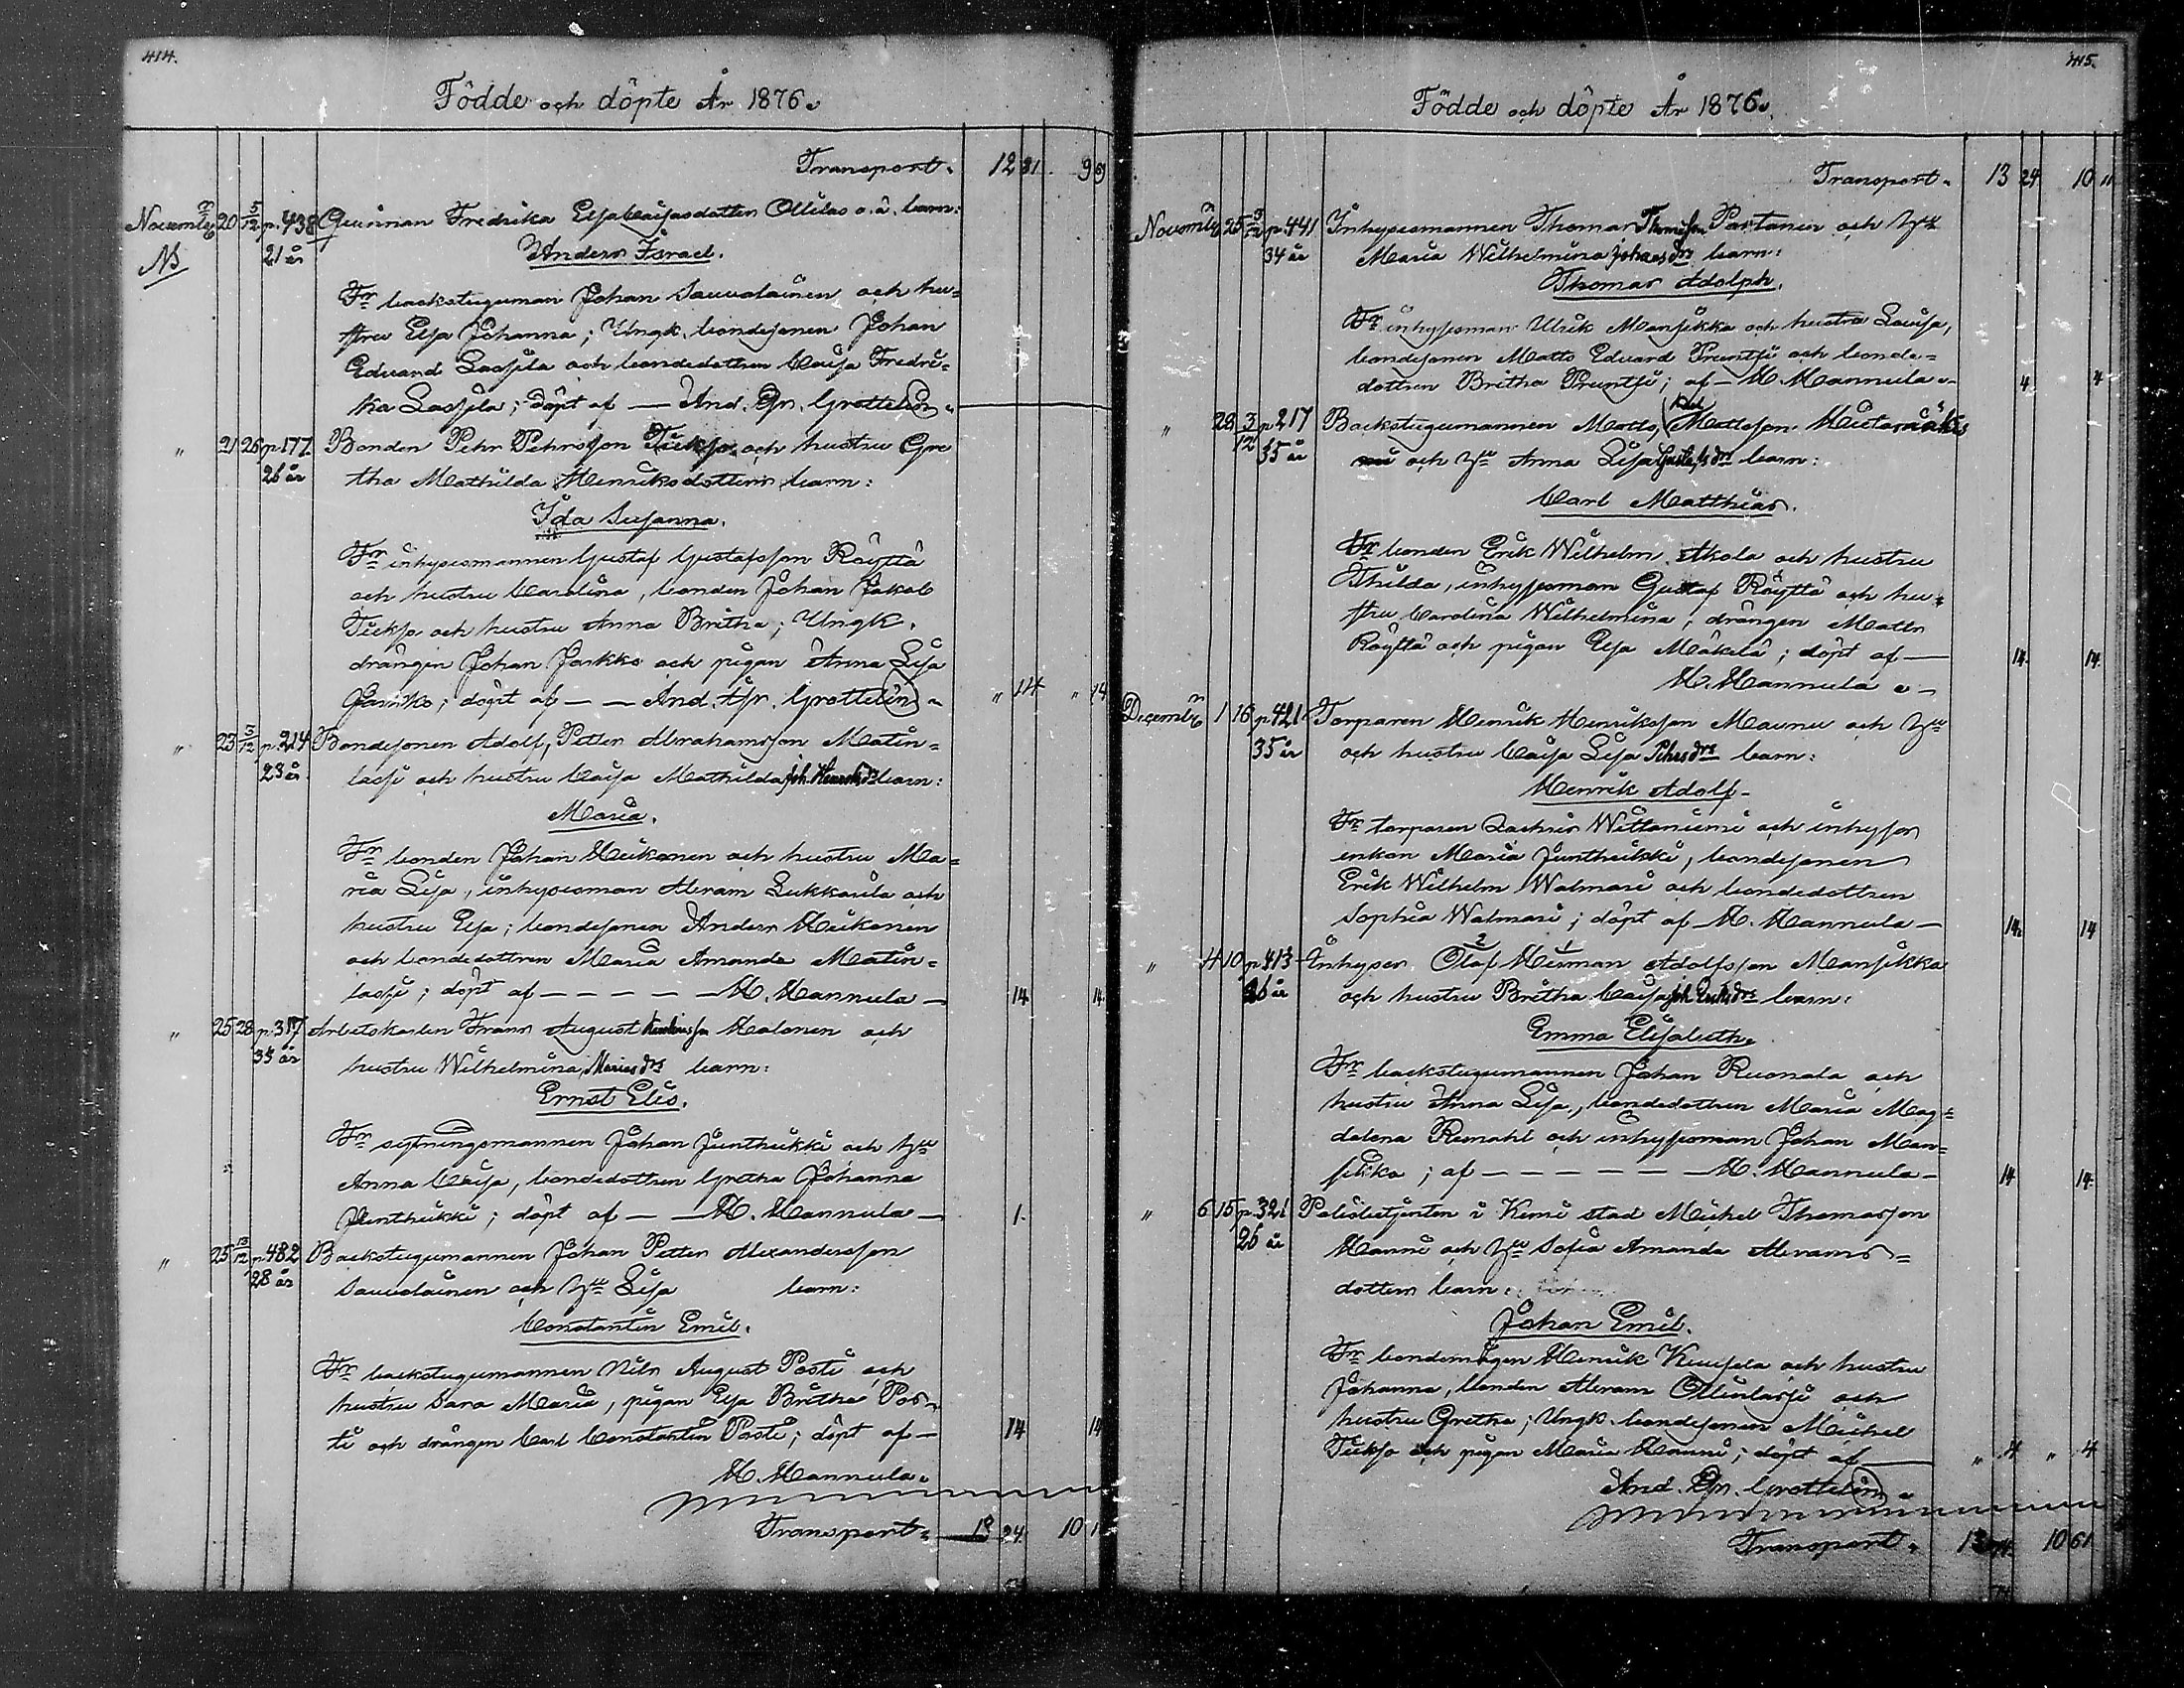 414.
Födde och döpte År 1876.
Transport. 12 81. 9 69
November 20 5/12 p. 438 Qvinnan Fredrika Elsa Caisasdotter Ollilas o. ä. barn:
NB 21 år Anders Israel.
Fr backstuguman Johan Sauvolainen och hu-
stru Elsa Johanna; Ungk. bondesonen Johan
Eduard Lassila och bondedottren Caisa Fredri-
ka Lassila; döpt af — And. Gr. Grottelin.
" 21 26 p. 177. Bonden Pehr Pehrsson Tiekso och hustru Gre
26 år tha Mathilda Henriksdotters barn:
Ida Susanna.
Fr inhysesmannen Gustaf Gustafsson Röyttä
och hustru Carolina, bonden Johan Jakob
Tiekso och hustru Anna Britha; Ungk.
drängen Johan Jaakko och pigan Anna Lisa
Jaakko; döpt af — — And. Gr. Grottelin. " 14 " 14
" 23 5/12 p. 214 Bondesonen Adolf Petter Abrahamsson Matin-
23 år lassi och hustru Caisa Mathilda Joh. Henriksdrs barn:
Maria.
Fr bonden Johan Heikonen och hustru Ma-
ria Lisa, inhysesman Abram Lukkarila och
hustru Elsa; bondesonen Anders Heikonen
och bondedottren Maria Amanda Matin-
lassi; döpt af — — — — — H. Hannula — 14 14.
" 25 28 p. 317 Arbetskarlen Frans August Halonen och
35 år hustru Wilhelmina Mariesdrs barn:
Ernst Elis.
Fr sytningsmannen Johan Junthikki och hu
Anna Caisa, bondedottren Gretha Johanna
Junthikki; döpt af — — H. Hannula — 1.
" 25 13/12 p. 482 Backstugumannen Johan Petter Alexandersson
28 år Sauvolainen och hu Lisa barn:
Constantin Emil.
Fr backstugumannen Nils August Posti och
hustru Sara Maria, pigan Elsa Britha Pos-
ti och drängen Carl Constantin Posti; döpt af — 14 14
H. Hannula.
Transport. 13 24. 10 1
415.
Födde och döpte År 1876.
Transport. 13 24 10 11
November 25 3/12 p. 441 Inhysesmannen Thomas Thomasson Partanen och hu
34 år Maria Wilhelmina Johansdrs barn:
Thomas Adolph.
Fr inhysesman Ulrik Mansikka och hustru Lovisa,
bondesonen Matts Eduard Pruntsi och bonde-
dottren Britha Pruntsi; af — H. Hannula — 4 4
" 29 3/12 p. 217 Backstugumannen Matts Mattsson
35 år och hu Anna Lisa Gustafsdrs barn:
Carl Matthias.
Fr bonden Erik Wilhelm Akola och hustru
Thilda, inhysesman Gustaf Röyttä och hu-
stru Carolina Wilhelmina; drängen Matts
Röyttä och pigan Elsa Mäkelä; döpt af — 14. 14.
H. Hannula —
December 1 16 p. 421 Torparen Henrik Henriksson Maunu och hu
35 år och hustru Caisa Lisa Pehrsdrs barn:
Henrik Adolf.
Fr torparen Zachris Wittaniemi och inhyses
enkan Maria Junthikki, bondesonen
Erik Wilhelm Walmari och bondedottren
Sophia Walmari; döpt af H. Hannula — 14. 14
" 4 10 p. 413 Inhyses. Olaf Herman Adolfsson Mansikka
26 år och hustru Britha Caisa Joh. Eriksdrs barn:
Emma Elisabeth.
Fr backstugumannen Johan Ruonala och
hustru Anna Lisa, bondedottren Maria Mag-
dalena Rumohl och inhysesman Johan Man-
sikka; af — — — — — — H. Hannula — 14 14.
" 6 15 p. 321 Polisbetjenten i Kemi stad Michel Thomasson
26 år Hannu och hu Sofia Amanda Abrams-
dotters barn:
Johan Emil.
Fr bondemågen Henrik Kuusela och hustru
Johanna, bonden Abram Ollinlassi och
hustru Gretha; Ungk. bondesonen Michel
Tiekso och pigan Maria Hannu; döpt af — " 4 " 4
And. Gr. Grottelin.
Transport. 13 10 61